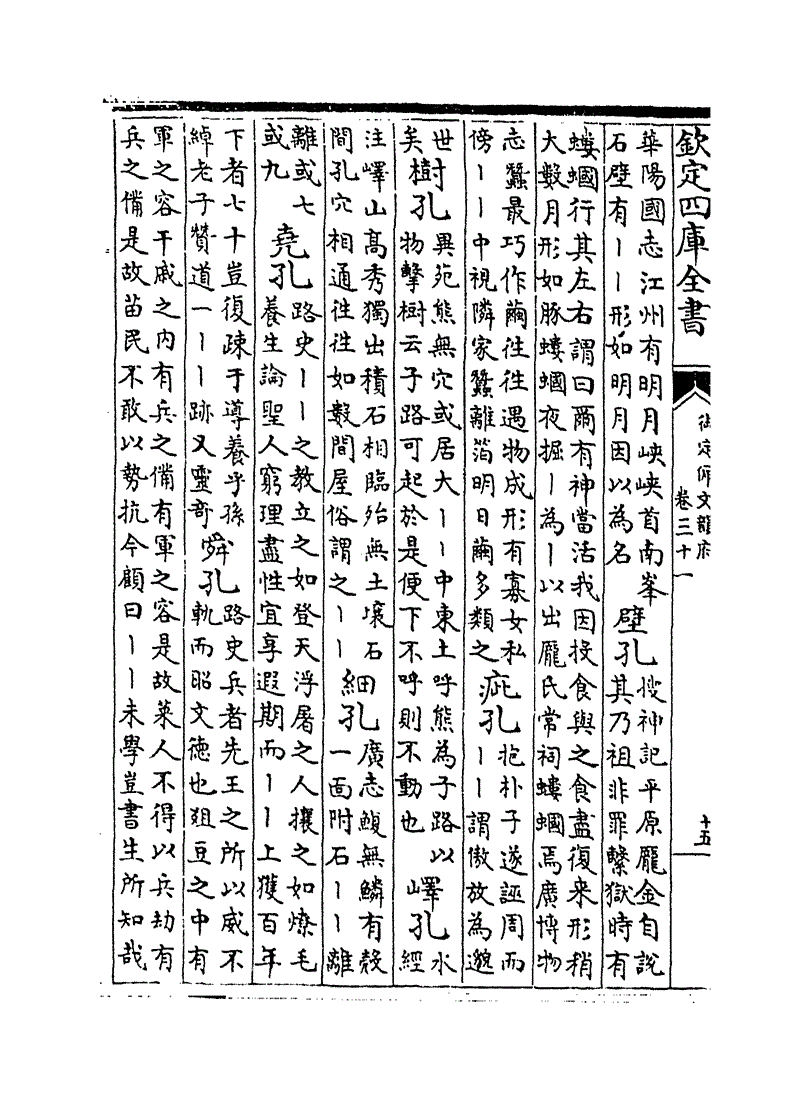 欽定四庫全書 御定佩文韻府 卷三十一 十五
華陽國志江州有明月峽峽首南峯
石壁有丨丨形如明月因以為名
壁孔
搜神記平原龎金自說
其乃祖非罪繫獄時有
螻蟈行其左右謂曰爾有神當活我因投食與之食盡復來形稍
大數月形如豚螻蟈夜掘丨為丨以出龎氏常祠螻蟈焉廣博物
志蠶最巧作繭往往遇物成形有寡女私
傍丨丨中視隣家蠶離箔明日繭多類之
疵孔
抱朴子遂誣周而
丨丨謂傲放為邈
世
矣
樹孔
異苑熊無穴或居大丨丨中東土呼熊為子路以
物擊樹云子路可起於是便下不呼則不動也
嶧孔
水
經
注嶧山高秀獨出積石相臨殆無土壤石
間孔穴相通往往如數間屋俗謂之丨丨
細孔
廣志鰒無鱗有殼
一面附石丨丨離
離或七
或九
堯孔
路史丨丨之教立之如登天浮屠之人攘之如燎毛
養生論聖人窮理盡性宜享遐期而丨丨上獲百年
下者七十豈復疎于導養乎孫
綽老子贊道一丨丨丨跡又靈奇
舜孔
路史兵者先王之所以威不
軌而昭文德也俎豆之中有
軍之容干戚之内有兵之備有軍之容是故萊人不得以兵劫有
兵之備是故苗民不敢以勢抗今顧曰丨丨未學豈書生所知哉